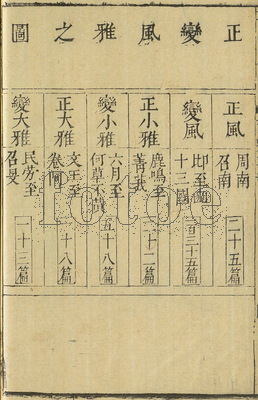 正變風雅之圖
正風
周南
召南
二十五篇
變風
邶至豳
十三國
百三十五篇
正小雅
鹿鳴至
菁莪
二十二篇
變小雅
六月至
何草不黃
五十八篇
正大雅
文王至
卷阿
一十八篇
變大雅
民勞至
召旻
一十三篇
fotoe